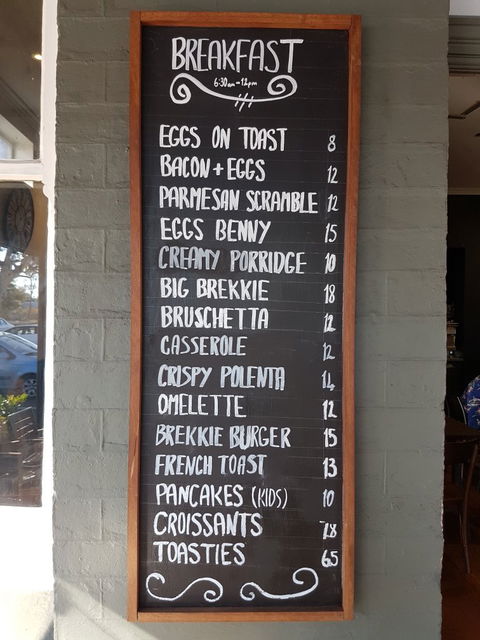 BREAKFAST
6:30am-12pm
EGGS ON TOAST 8
BACON+EGGS 12
PARMESAN SCRAMBLE 12
EGGS BENNY 15
CREAMY PORRIDGE 10
BIG BREKKIE 18
BRUSCHETTA 12
CASSEROLE 12
CRISPY POLENTA 14
OMELETTE 12
BREKKIE BURGER 15
FRENCH TOAST 13
PANCAKES (KIDS) 10
CROISSANTS
TOASTIES 6.5